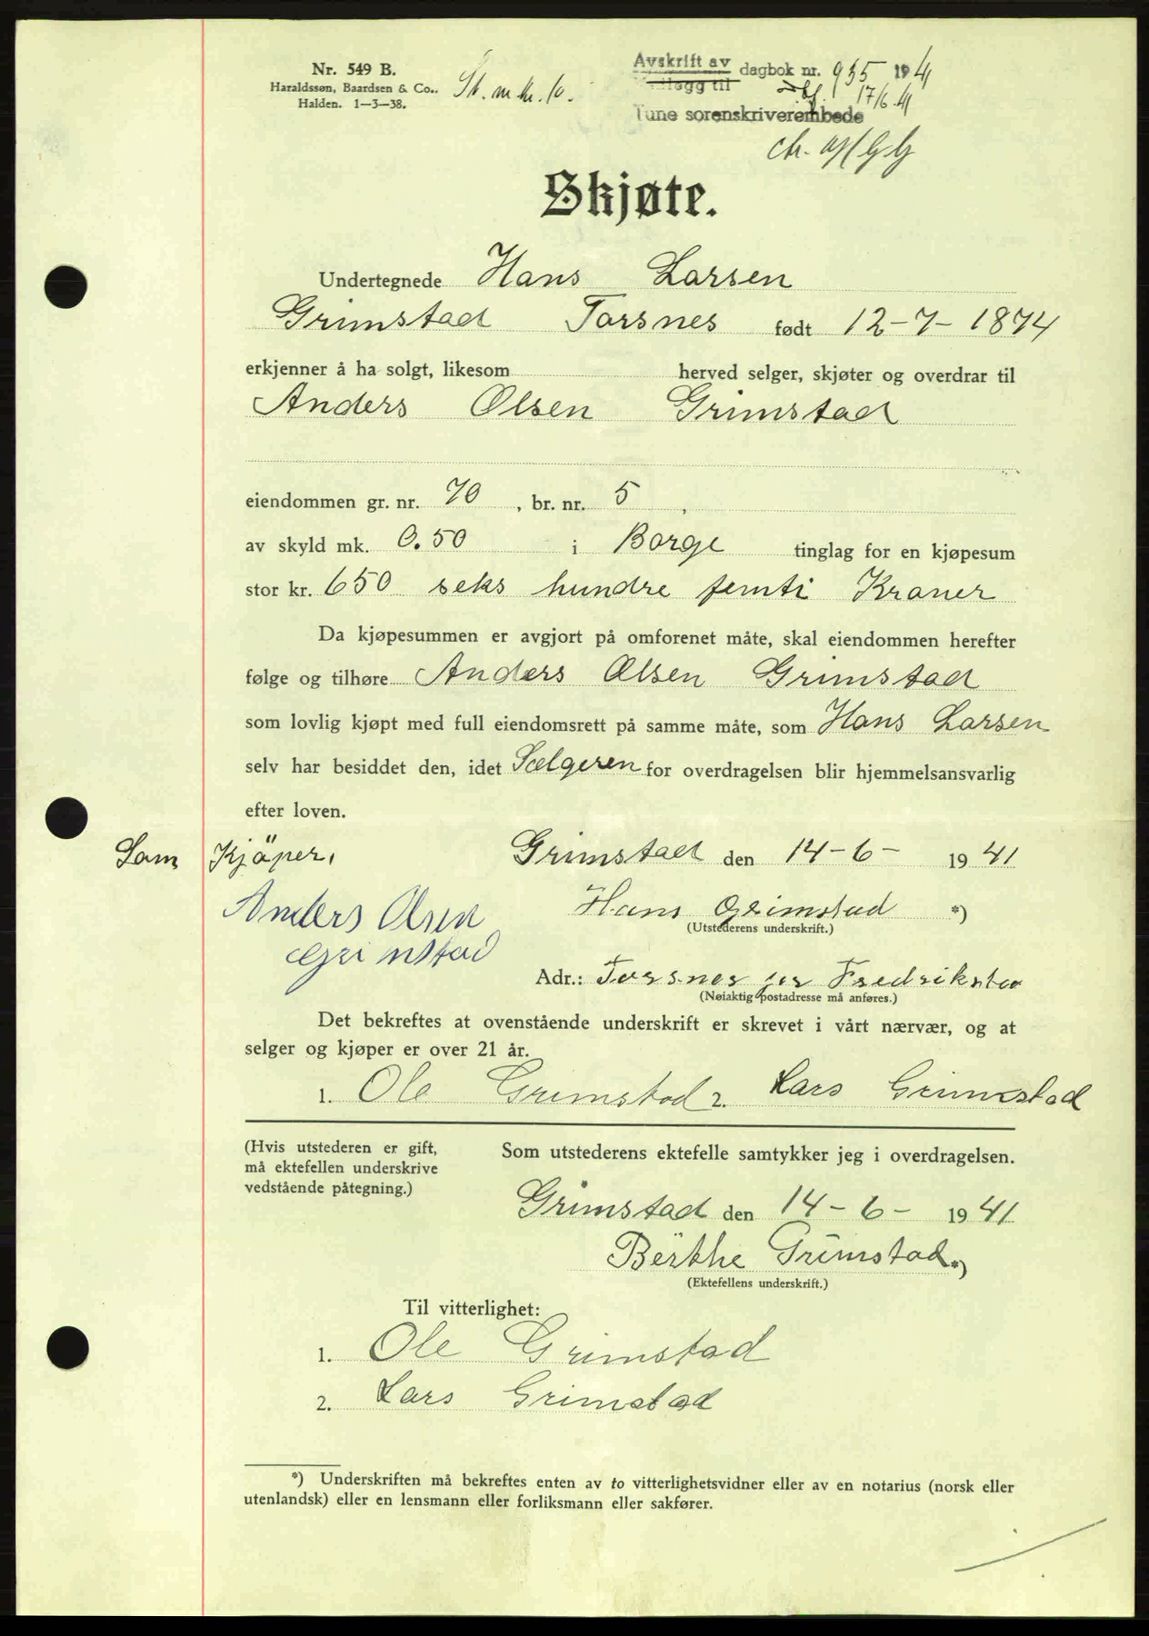 Nr. 549 B.
Haraldssøn, Baardsen & Co..
Halden. 1—3—38.
St. m. kr. 10.
Avskrift av
Vedlegg til
dagbok nr. 935 1941
17/6 41
Tune sorenskriverembede
Skjøte.
Undertegnede Hans Larsen
Grimstad Torsnes født 12-7-1874
erkjenner å ha solgt, likesom herved selger, skjøter og overdrar til
Anders Olsen Grimstad
eiendommen gr. nr. 70, br. nr. 5,
av skyld mk. 0.50 i Borge tinglag for en kjøpesum
stor kr. 650 seks hundre femti Kroner
Da kjøpesummen er avgjort på omforenet måte, skal eiendommen herefter
følge og tilhøre Anders Olsen Grimstad
som lovlig kjøpt med full eiendomsrett på samme måte, som Hans Larsen
selv har besiddet den, idet Sælgeren for overdragelsen blir hjemmelsansvarlig
efter loven.
Som Kjöper, Grimstad den 14-6- 1941
Anders Olsen Hans Grimstad *)
(Utstederens underskrift.)
Grimstad
Adr.: Torsnes pr Fredrikstad
(Nøiaktig postadresse må anføres.)
Det bekreftes at ovenstående underskrift er skrevet i vårt nærvær, og at
selger og kjøper er over 21 år.
1. Ole Grimstad 2. Lars Grimstad
(Hvis utstederen er gift,
må ektefellen underskrive
vedstående påtegning.)
Som utstederens ektefelle samtykker jeg i overdragelsen.
Grimstad den 14-6- 1941
Berthe Grimstad *)
(Ektefellens underskrift.)
Til vitterlighet:
1. Ole Grimstad
2. Lars Grimstad
*) Underskriften må bekreftes enten av to vitterlighetsvidner eller av en notarius (norsk eller
utenlandsk) eller en lensmann eller forliksmann eller sakfører.